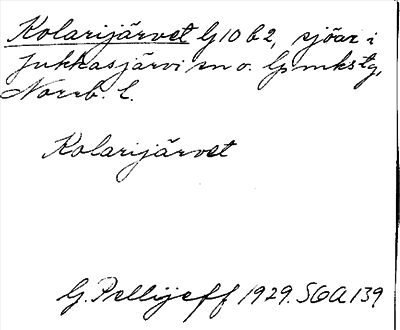 Kolarijärvet G10 b2, sjöar i
Jukkasjärvi sn o. lpmkstg,
Norrb. l.
Kolarijärvet
G. Pellijeff 1929. SOA 139